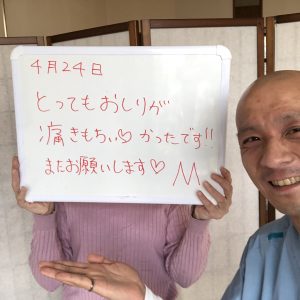 4月24日
とってもおしりが
痛きもちぃ♡かったです!!
またお願いします♡ M